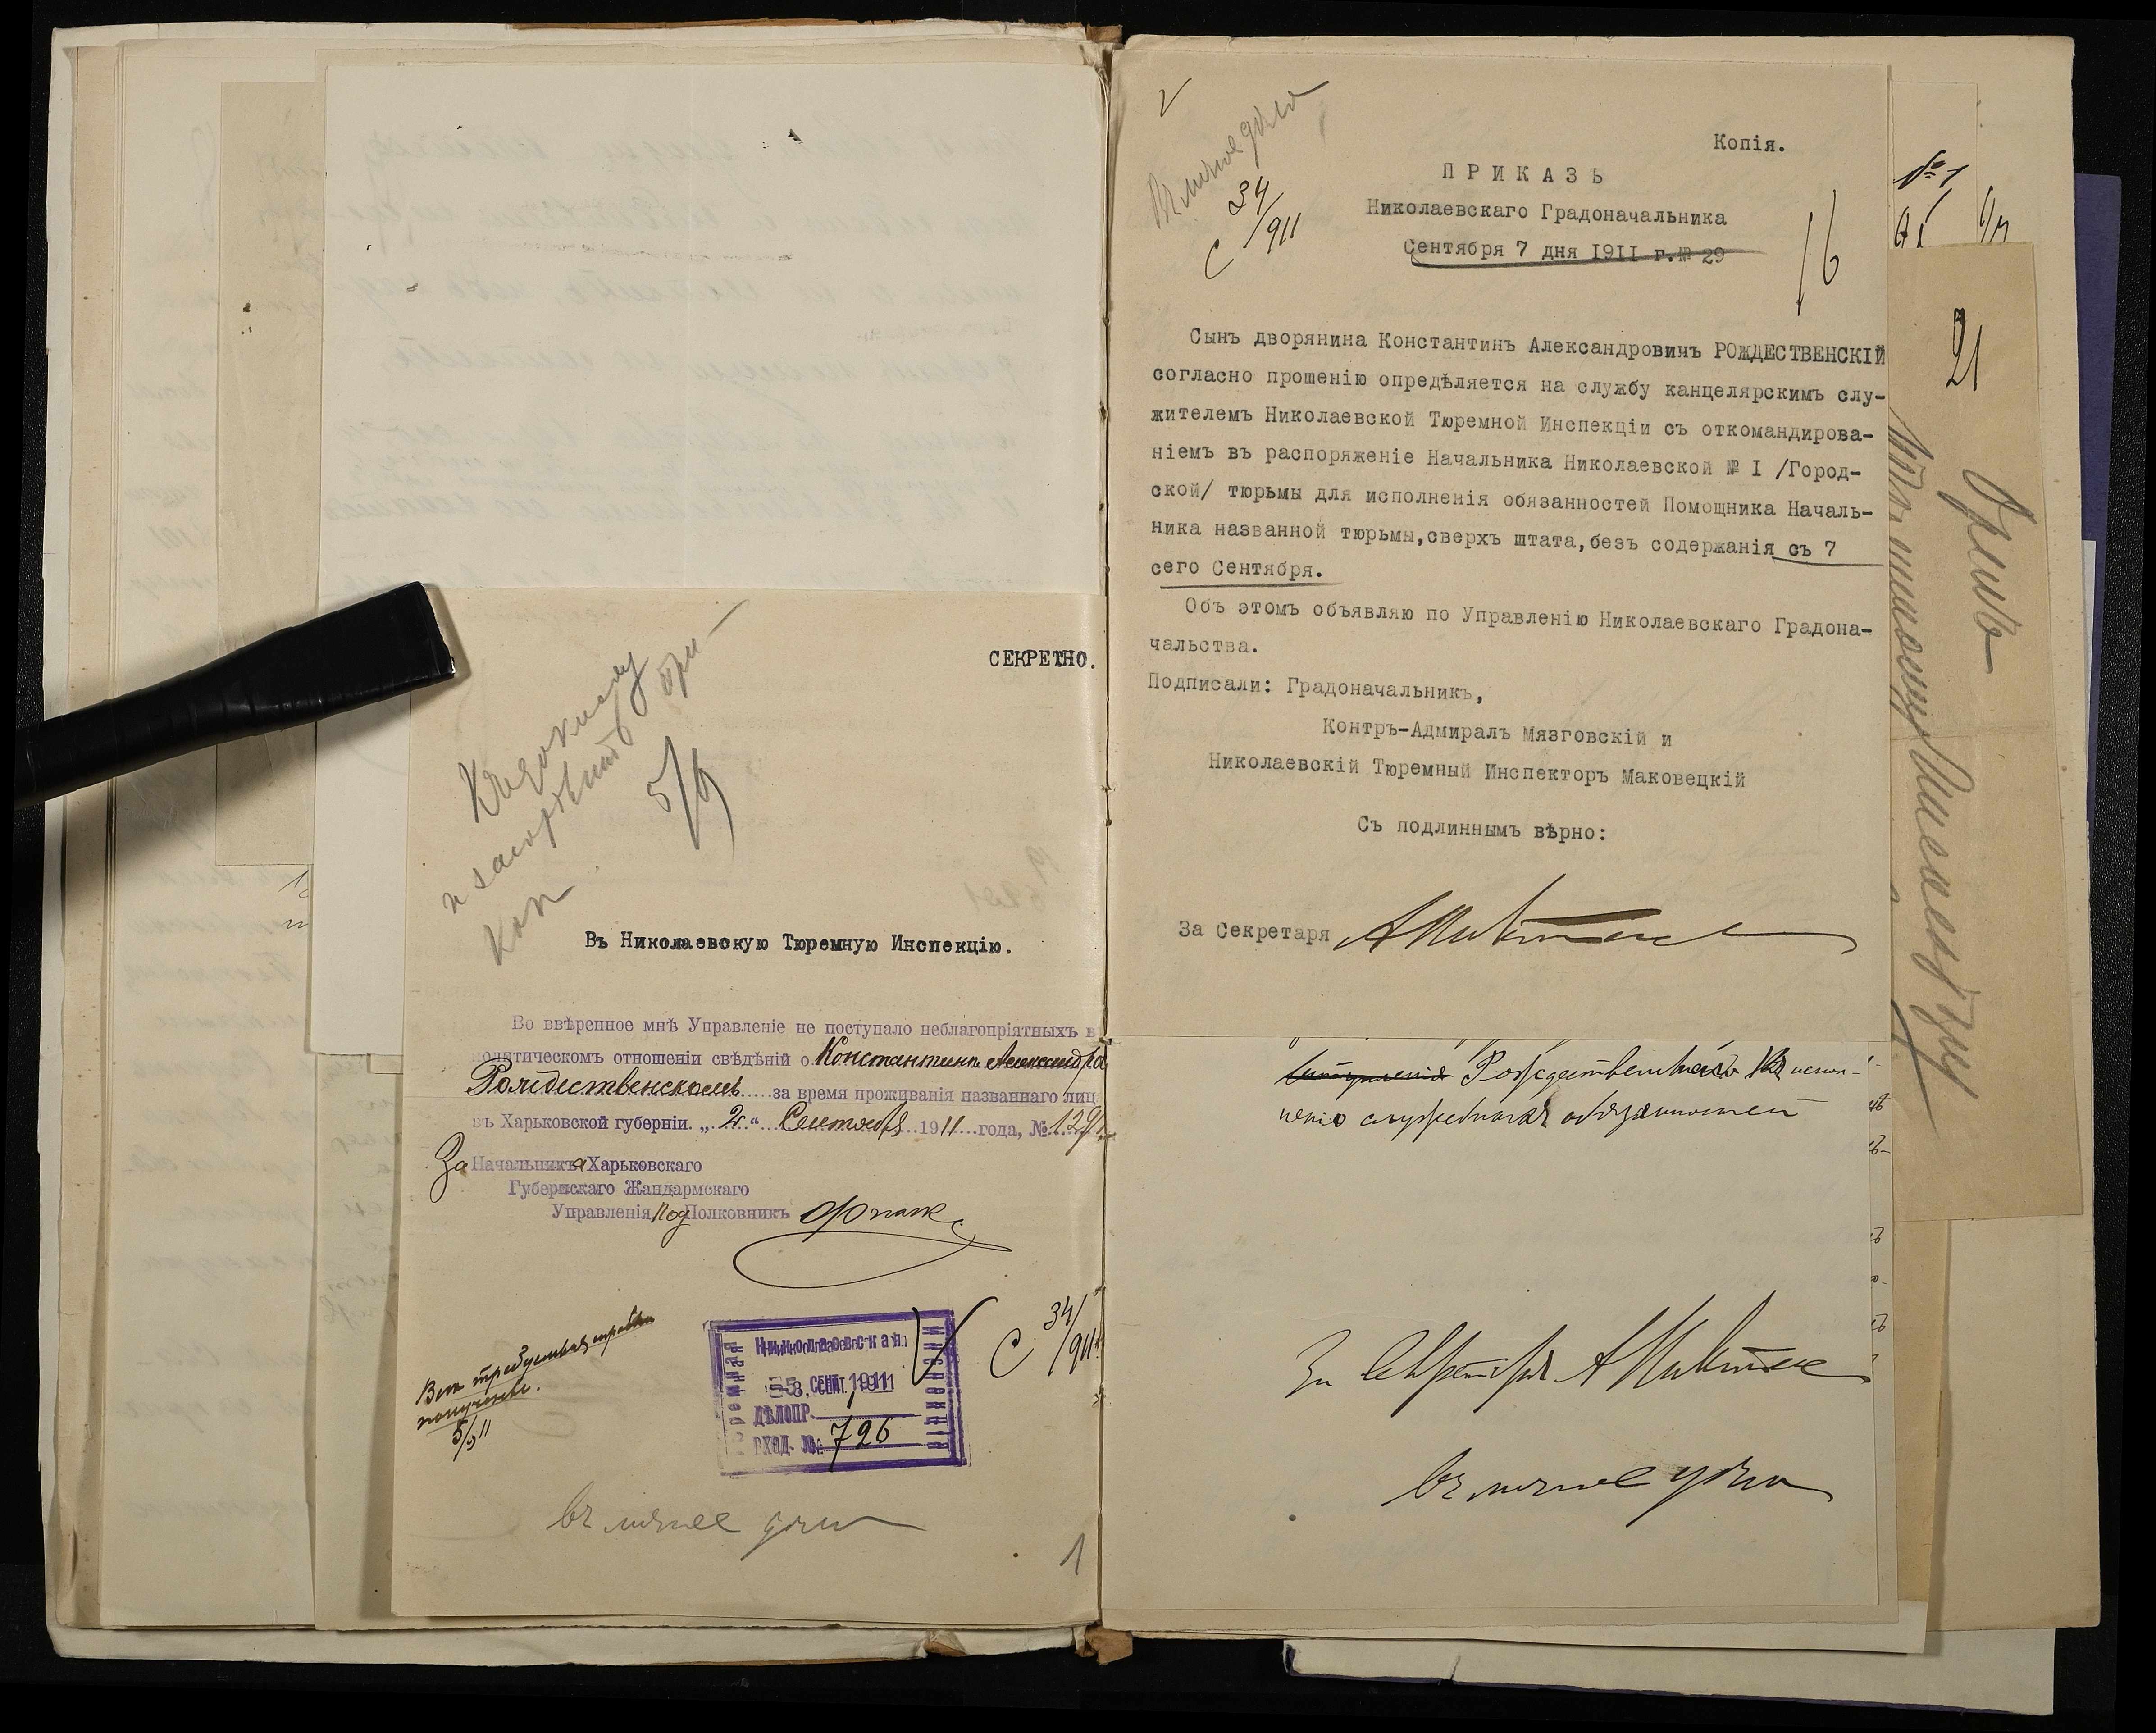 СЕКРЕТНО.
5/9
Въ Николаевскую Тюремную Инспекцію.
Во ввѣренное мнѣ Управленіе не поступало неблагопріятныхъ в
политическомъ отношеніи свѣдѣній о Константинѣ Александро
Рождественскомъ за время проживанія названнаго лиц
въ Харьковской губерніи. „ 2 “ Сентября 1911 года, №
За Начальника Харьковскаго
Губернскаго Жандармскаго
Управленія, Подполковникъ
Всѣ требуемыя справки
получены.
5/9 11
Николаевская
Тюремная
Инспекція
СЕНТ. 1911
ДѢЛОПР.
ВХОД. №: 726
С 34/911
Въ личное дѣло
1
Въ личное дѣло
С 34/911
Копія.
ПРИКАЗЪ
Николаевскаго Градоначальника
Сентября 7 дня 1911 г. № 29
16
Сынъ дворянина Константинъ Александровичъ РОЖДЕСТВЕНСКІЙ
согласно прошенію опредѣляется на службу канцелярскимъ слу-
жителемъ Николаевской Тюремной Инспекціи съ откомандирова-
ніемъ въ распоряженіе Начальника Николаевской № I /Город-
ской/ тюрьмы для исполненія обязанностей Помощника Началь-
ника названной тюрьмы, сверхъ штата, безъ содержанія съ 7
сего Сентября.
Объ этомъ объявляю по Управленію Николаевскаго Градона-
чальства.
Подписали: Градоначальникъ,
Контръ-Адмиралъ Мязговскій и
Николаевскій Тюремный Инспекторъ Маковецкій
Съ подлиннымъ вѣрно:
За Секретаря
Рождественскаго къ испол-
ненію служебныхъ обязанностей
За Секретаря
Въ личное дѣло
№ 1
21